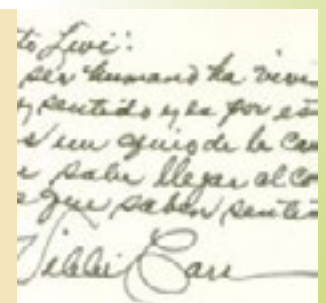 to Levi:
ser humano ha vivi
y sentido y es por es
s un equipo de la Can
e sabe llegar al co
s que saben senti
Vikki Carr